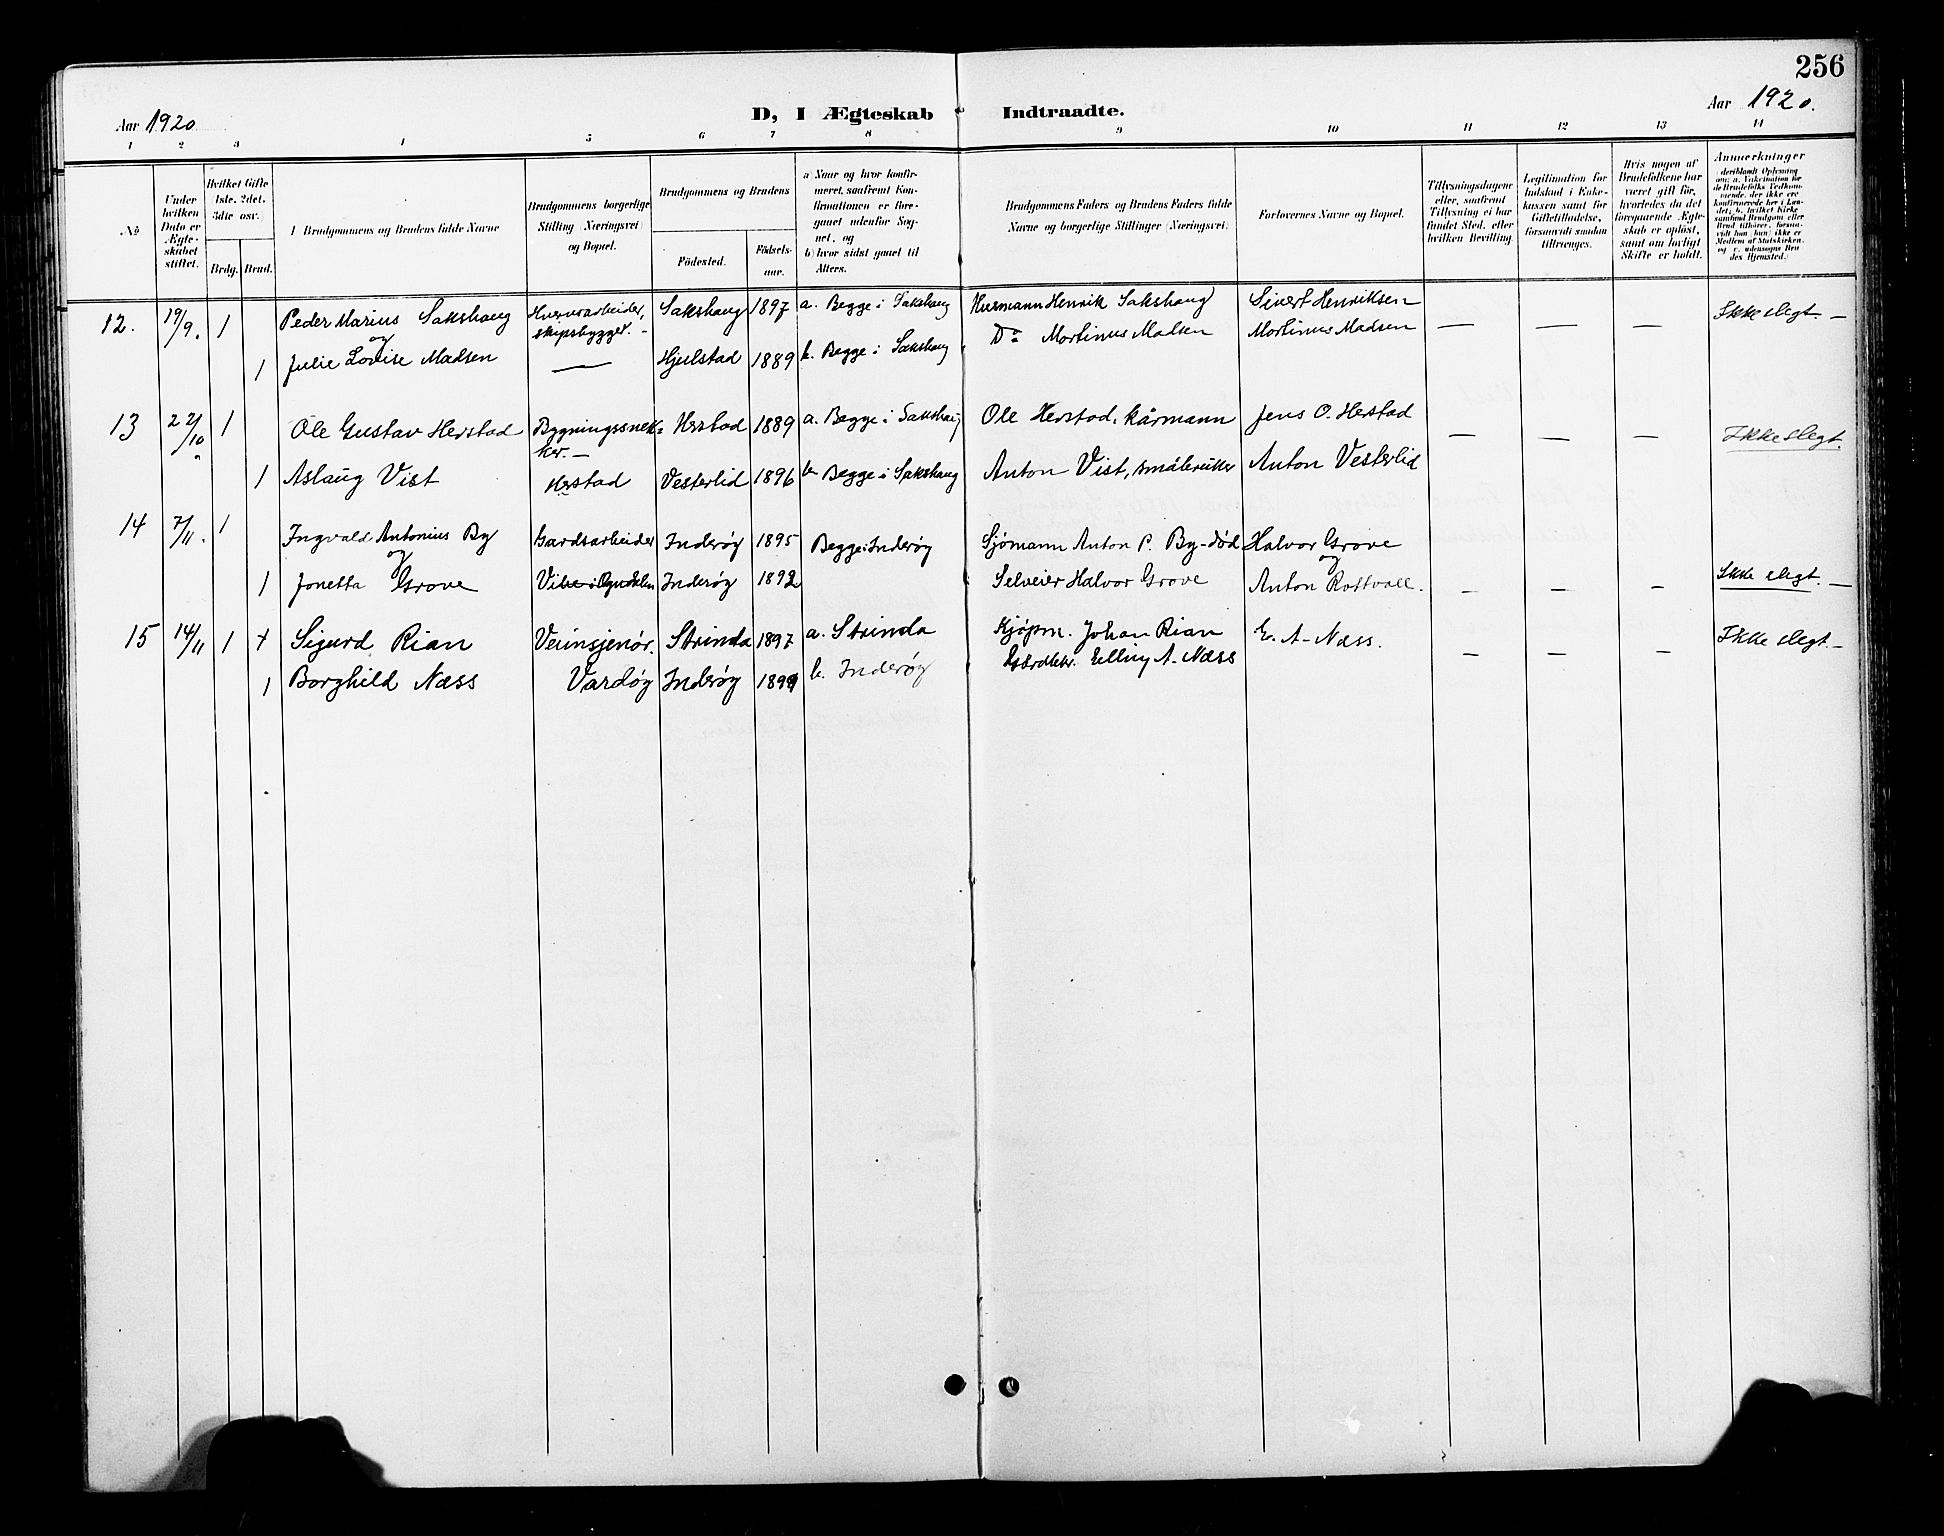 256
Aar 1920
D, I Ægteskab Indtraadte.
Aar 1920.
1 2 3 4 5 6 7 8 9 10 11 12 13 14
No
Under hvilken Dato er Ægteskabet stiftet.
Hvilket Gifte 1ste. 2det. 3die osv.
Brdg. Brud.
1 Brudgommens og Brudens fulde Navne
Brudgommens borgerlige Stilling (Næringsvei) og Bopæl.
Brudgommens og Brudens
Födested.
Födsels-aar.
a Naar og hvor konfirmeret, saafremt Konfirmationen er foregaaet udenfor Sognet, og
b) hvor sidst gaaet til Alters.
Brudgommens Faders og Brudens Faders fulde Navne og borgerlige Stillinger (Næringsvei).
Forlovernes Navne og Bopæl.
Tillysningsdagene eller, saafremt Tillysning ei har fundet Sted, efter hvilken Bevilling
Legitimation for Indskud i Enkekassen samt for Giftetilladelse, forsaavidt saadan tiltrænges.
Hvis nogen af Brudefolkene har været gift för, hvorledes da det foregaaende Ægteskab er oplöst, samt om lovligt Skifte er holdt.
Anmerkninger
12. 19/9. 1 Peder Marius Sakshaug Sakshaug 1897 a. Begge i Sakshaug Husmann Henrik Sakshaug Sivert Henriksen Ikke slegt. —
og skipsbygger. — Do Mortinus Madsen Mortinus Madsen — — —
1 Julie Lovise Madsen — Hjulstad 1889 b. Begge i Sakshaug
13 22/10 1 Ole Gustav Herstad Bygningssnek= Herstad 1889 a. Begge i Sakshaug Ole Herstad, kårmann Jens O. Herstad
ker. — — — — Ikke slegt.
1 Aslaug Vist Herstad Vesterlid 1896 b Begge i Sakshaug Anton Vist, småbruker Anton Vesterlid
14 7/11. 1 Ingvald Antonius By Gardsarbeider Inderøy 1895 Begge i Inderøy Sjømann Anton P. By - død Halvor Grove
og og
1 Jonetta Grove Inderøy 1892 Selveier Halvor Grove Anton Rostvoll. — — — Ikke slegt. —
15 14/11 1 + Sigurd Rian Strinda 1897 a. Strinda Kjøpm. Johan Rian E. A. Næss. Ikke slegt —
1 Borghild Næss Vardøy Inderøy b. Inderøy Elling A. Næss — — —